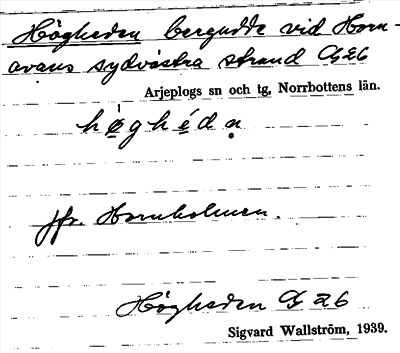 Högheden bergudde vid Horn-
avans sydvästra strand G 26
Arjeplogs sn och tg, Norrbottens län.
hö́ghédạ
jfr. Hornholmen.
Högheden G 26
Sigvard Wallström, 1939.